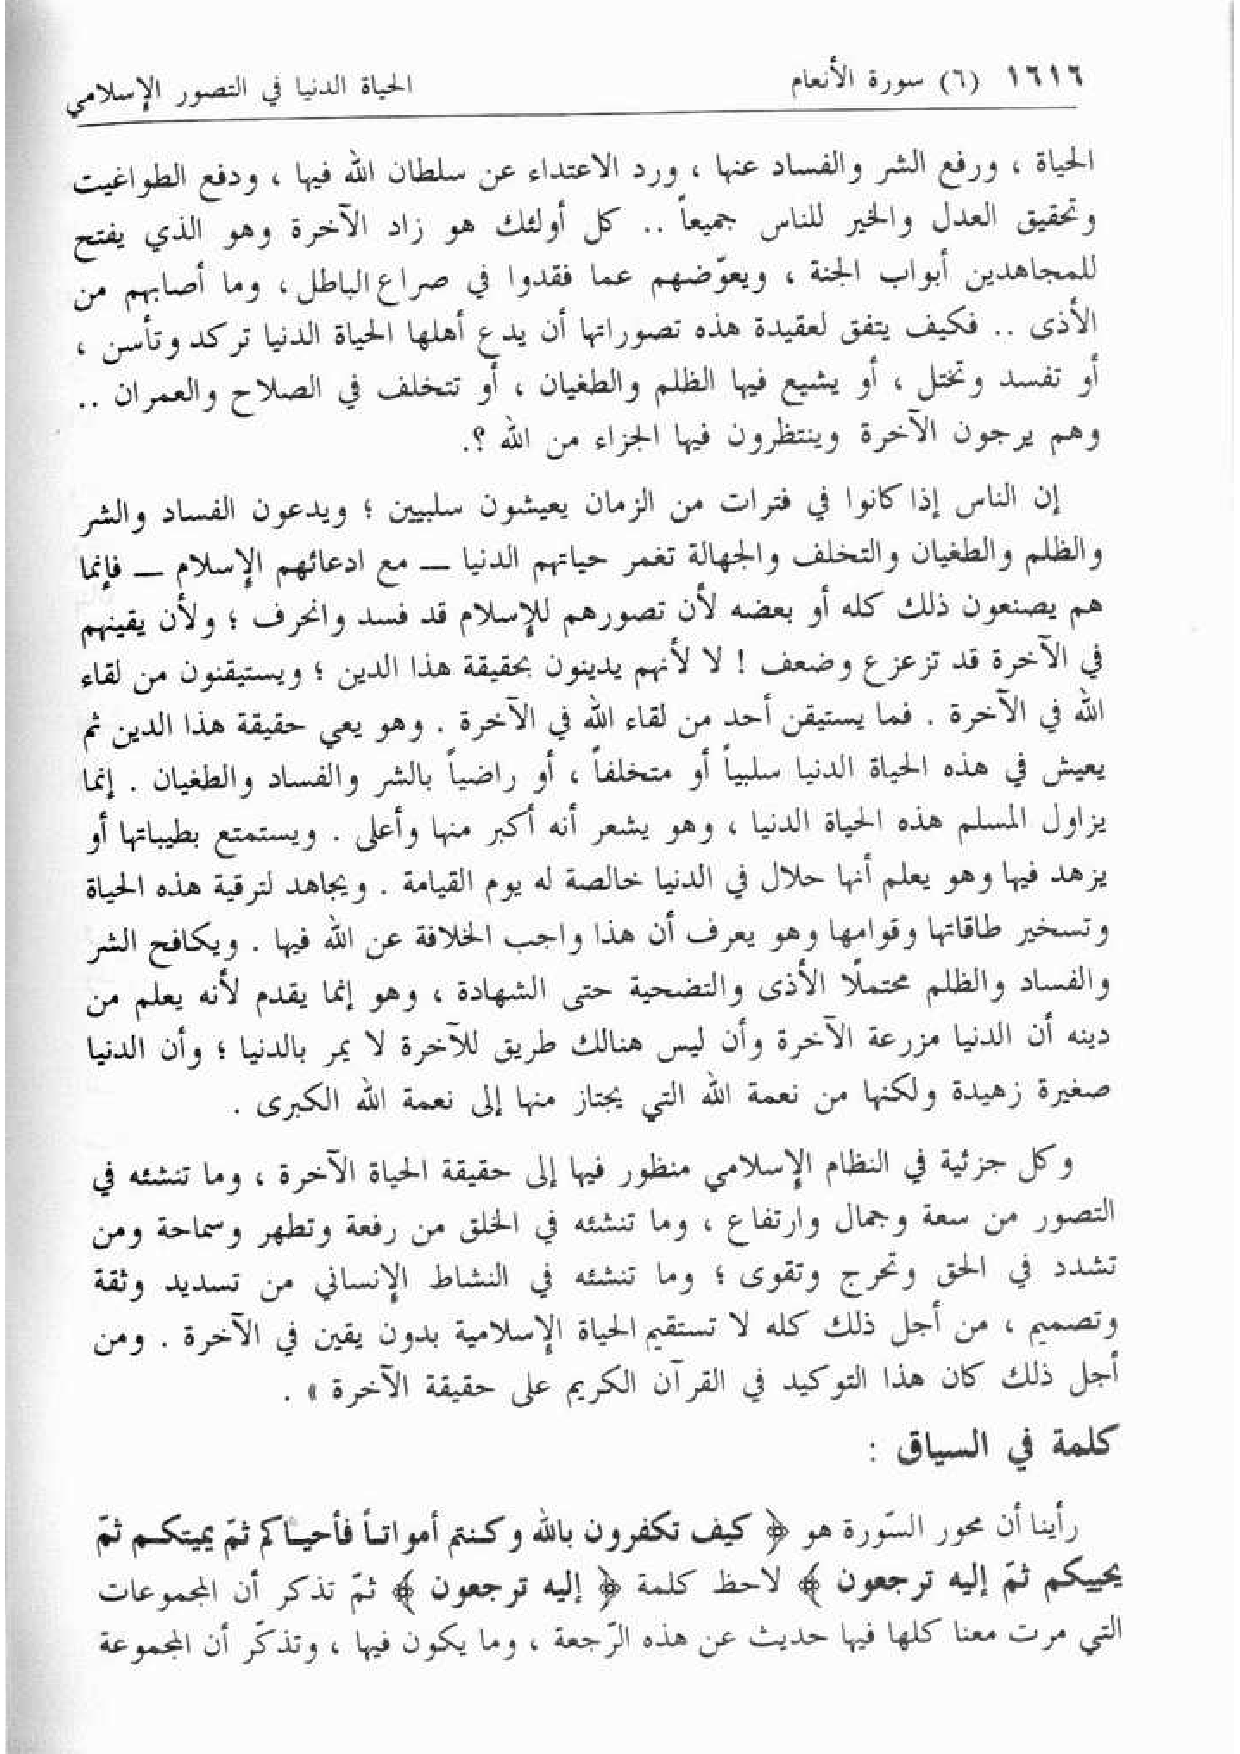 ١٦١٦ (٦) سورة الأنعام الحياة الدنيا في التصور الإسلامي
الحياة ، ورفع الشر والفساد عنها ، ورد الاعتداء عن سلطان الله فيها ، ودفع الطواغيت
وتحقيق العدل والخير للناس جميعاً .. كل أولئك هو زاد الآخرة وهو الذي يفتح
للمجاهدين أبواب الجنة ، ويعوّضهم عما فقدوا في صراع الباطل ، وما أصابهم من
الأذى .. فكيف يتفق لعقيدة هذه تصوراتها أن يدع أهلها الحياة الدنيا تركد وتأسن ،
أو تفسد وتختل ، أو يشيع فيها الظلم والطغيان ، أو تتخلف في الصلاح والعمران ..
وهم يرجون الآخرة وينتظرون فيها الجزاء من الله ؟.
إن الناس إذا كانوا في فترات من الزمان يعيشون سلبيين ؛ ويدعون الفساد والشر
والظلم والطغيان والتخلف والجهالة تغمر حياتهم الدنيا ــ مع ادعائهم الإسلام ــ فإنما
هم يصنعون ذلك كله أو بعضه لأن تصورهم للإسلام قد فسد وانحرف ؛ ولأن يقينهم
في الآخرة قد تزعزع وضعف ! لا لأنهم يدينون بحقيقة هذا الدين ؛ ويستيقنون من لقاء
الله في الآخرة . فما يستيقن أحد من لقاء الله في الآخرة . وهو يعي حقيقة هذا الدين ثم
يعيش في هذه الحياة الدنيا سلبياً أو متخلفاً ، أو راضياً بالشر والفساد والطغيان . إنما
يزاول المسلم هذه الحياة الدنيا ، وهو يشعر أنه أكبر منها وأعلى . ويستمتع بطيباتها أو
يزهد فيها وهو يعلم أنها حلال في الدنيا خالصة له يوم القيامة . ويجاهد لترقية هذه الحياة
وتسخير طاقاتها وقوامها وهو يعرف أن هذا واجب الخلافة عن الله فيها . ويكافح الشر
والفساد والظلم محتملًا الأذى والتضحية حتى الشهادة ، وهو إنما يقدم لأنه يعلم من
دينه أن الدنيا مزرعة الآخرة وأن ليس هنالك طريق للآخرة لا يمر بالدنيا ؛ وأن الدنيا
صغيرة زهيدة ولكنها من نعمة الله التي يجتاز منها إلى نعمة الله الكبرى .
وكل جزئية في النظام الإسلامي منظور فيها إلى حقيقة الحياة الآخرة ، وما تنشئه في
التصور من سعة وجمال وارتفاع ، وما تنشئه في الخلق من رفعة وتطهر وسماحة ومن
تشدد في الحق وتحرج وتقوى ؛ وما تنشئه في النشاط الإنساني من تسديد وثقة
وتصميم ، من أجل ذلك كله لا تستقيم الحياة الإسلامية بدون يقين في الآخرة . ومن
أجل ذلك كان هذا التوكيد في القرآن الكريم على حقيقة الآخرة » .
كلمة في السياق :
رأينا أن محور السّورة هو ﴿ كيف تكفرون بالله وكنتم أمواتاً فأحياكم ثمّ يميتكم ثمّ
يحييكم ثمّ إليه ترجعون ﴾ لاحظ كلمة ﴿ إليه ترجعون ﴾ ثمّ تذكر أن المجموعات
التي مرت معنا كلها فيها حديث عن هذه الرّجعة ، وما يكون فيها ، وتذكّر أن المجموعة